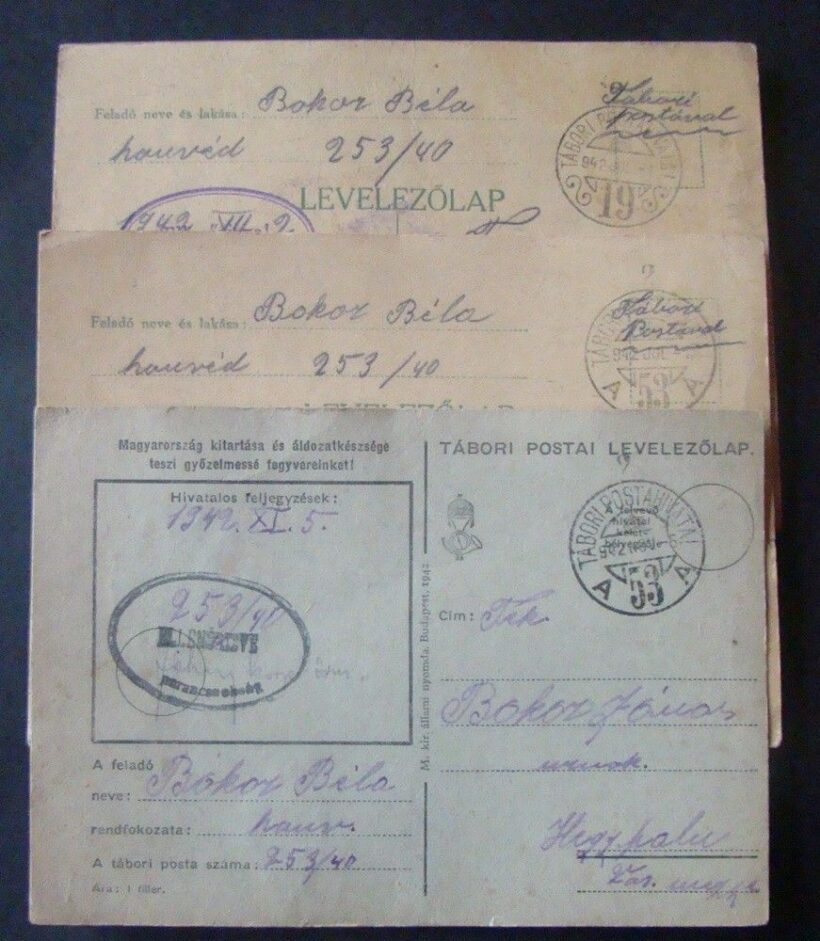 Feladó neve és lakása: Bokor Béla
honvéd 253/40
Tábori
postával
TÁBORI POSTAHIVATAL
942
19
LEVELEZŐLAP
1942 XII. 2.
Feladó neve és lakása: Bokor Béla
honvéd 253/40
Tábori
Postával
942
A 53 A
LEVELEZŐLAP
Magyarország kitartása és áldozatkészsége
teszi győzelmessé fegyvereinket!
Hivatalos feljegyzések:
1942. XI. 5.
253/40
ELLENŐRIZVE
parancsnokság
A feladó
neve: Bokor Béla
rendfokozata: honv.
A tábori posta száma: 253/40
Ára: 1 fillér.
M. kir. állami nyomda. Budapest, 1942
TÁBORI POSTAI LEVELEZŐLAP.
TÁBORI POSTAHIVATAL
A felvevő
hivatal
kelet-
bélyegzője
942
A 53 A
Cím: Tek.
Bokor János
urnak.
Hegyfalu
Vas. megye